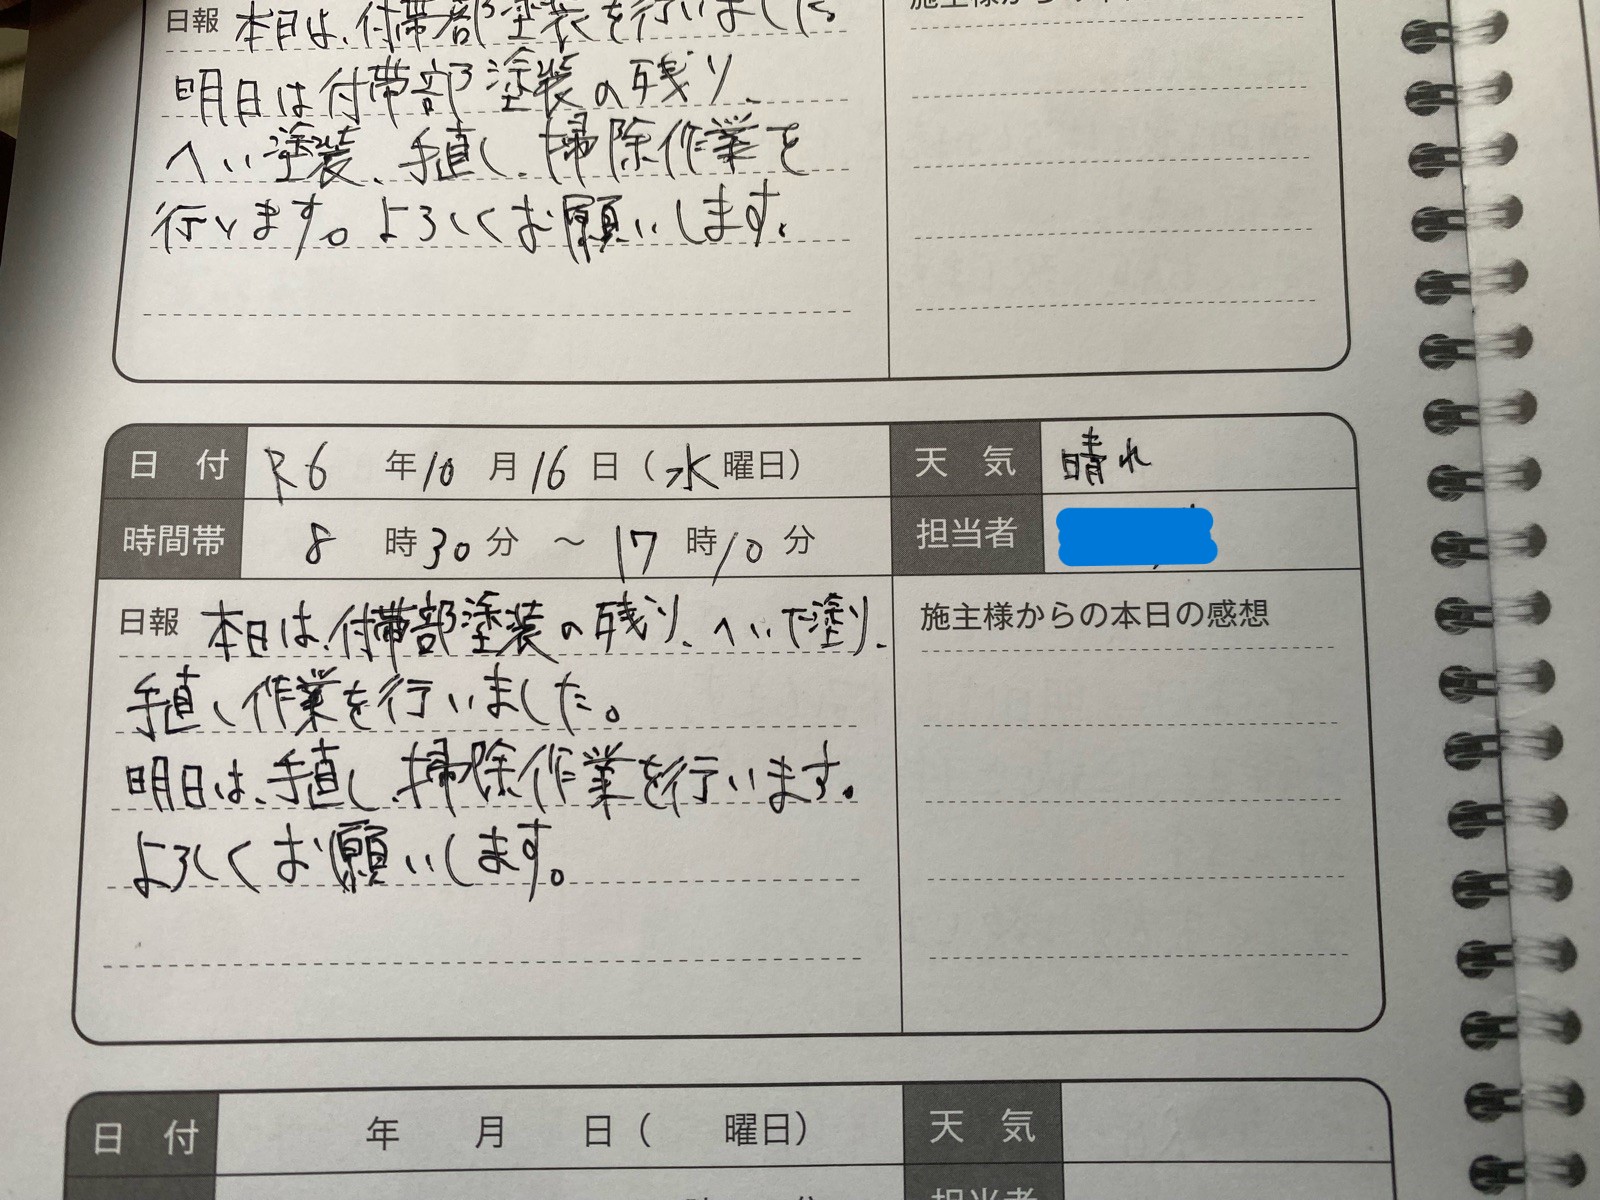 日報 本日は、付帯部塗装を行いました。
明日は付帯部塗装の残り、
へい塗装、手直し、掃除作業を
行います。よろしくお願いします。
日 付 R6 年 10 月 16 日 ( 水 曜日) 天 気 晴れ
時間帯 8 時 30 分 ～ 17 時 10 分 担当者
日報 本日は、付帯部塗装の残り、へい下塗り、
手直し作業を行いました。
明日は、手直し、掃除作業を行います。
よろしくお願いします。
施主様からの本日の感想
日 付 年 月 日 ( 曜日) 天 気
担当者